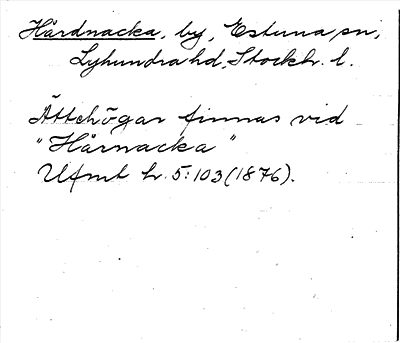 Hårdnacka, by, Estuna sn,
Lyhundra hd, Stockh. l.
Ättehögar finnas vid
"Hårnacka"
Ufmt h. 5: 103 (1876).